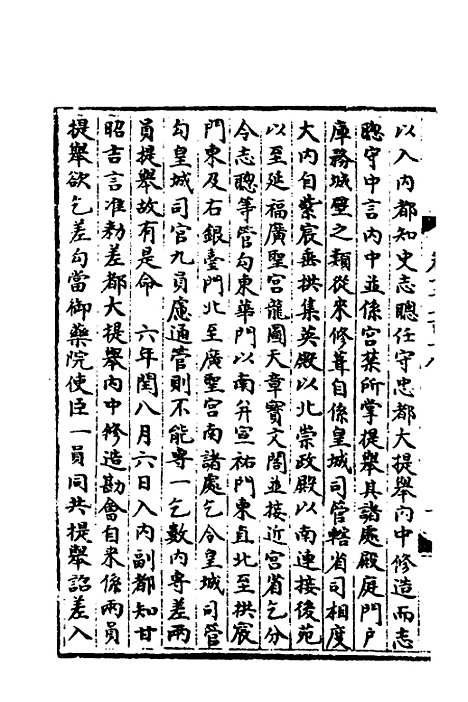 以入内都知史志聰任守忠都大提舉内中修造而志
聰守中言内中並係宫禁所掌提舉其諸處殿庭門户
庫務城壁之類從來修葺自係皇城司管轄省司相度
大内自紫宸垂拱集英殿以北崇政殿以南連接後苑
以至延福廣聖宫龍圖天章寳文閣並接近宫省乞分
令志聰等管勾東華門以南并宣祐門東直北至拱宸
門東及右銀臺門北至廣聖宫南諸處乞令皇城司管
勾皇城司官九員慮通管則不能専一乞數内専差兩
員提舉故有是命　六年閏八月六日入内副都知甘
昭吉言准勅差都大提舉内中修造勘會自來係兩員
提舉欲乞差勾當御藥院使臣一員同共提舉詔差入